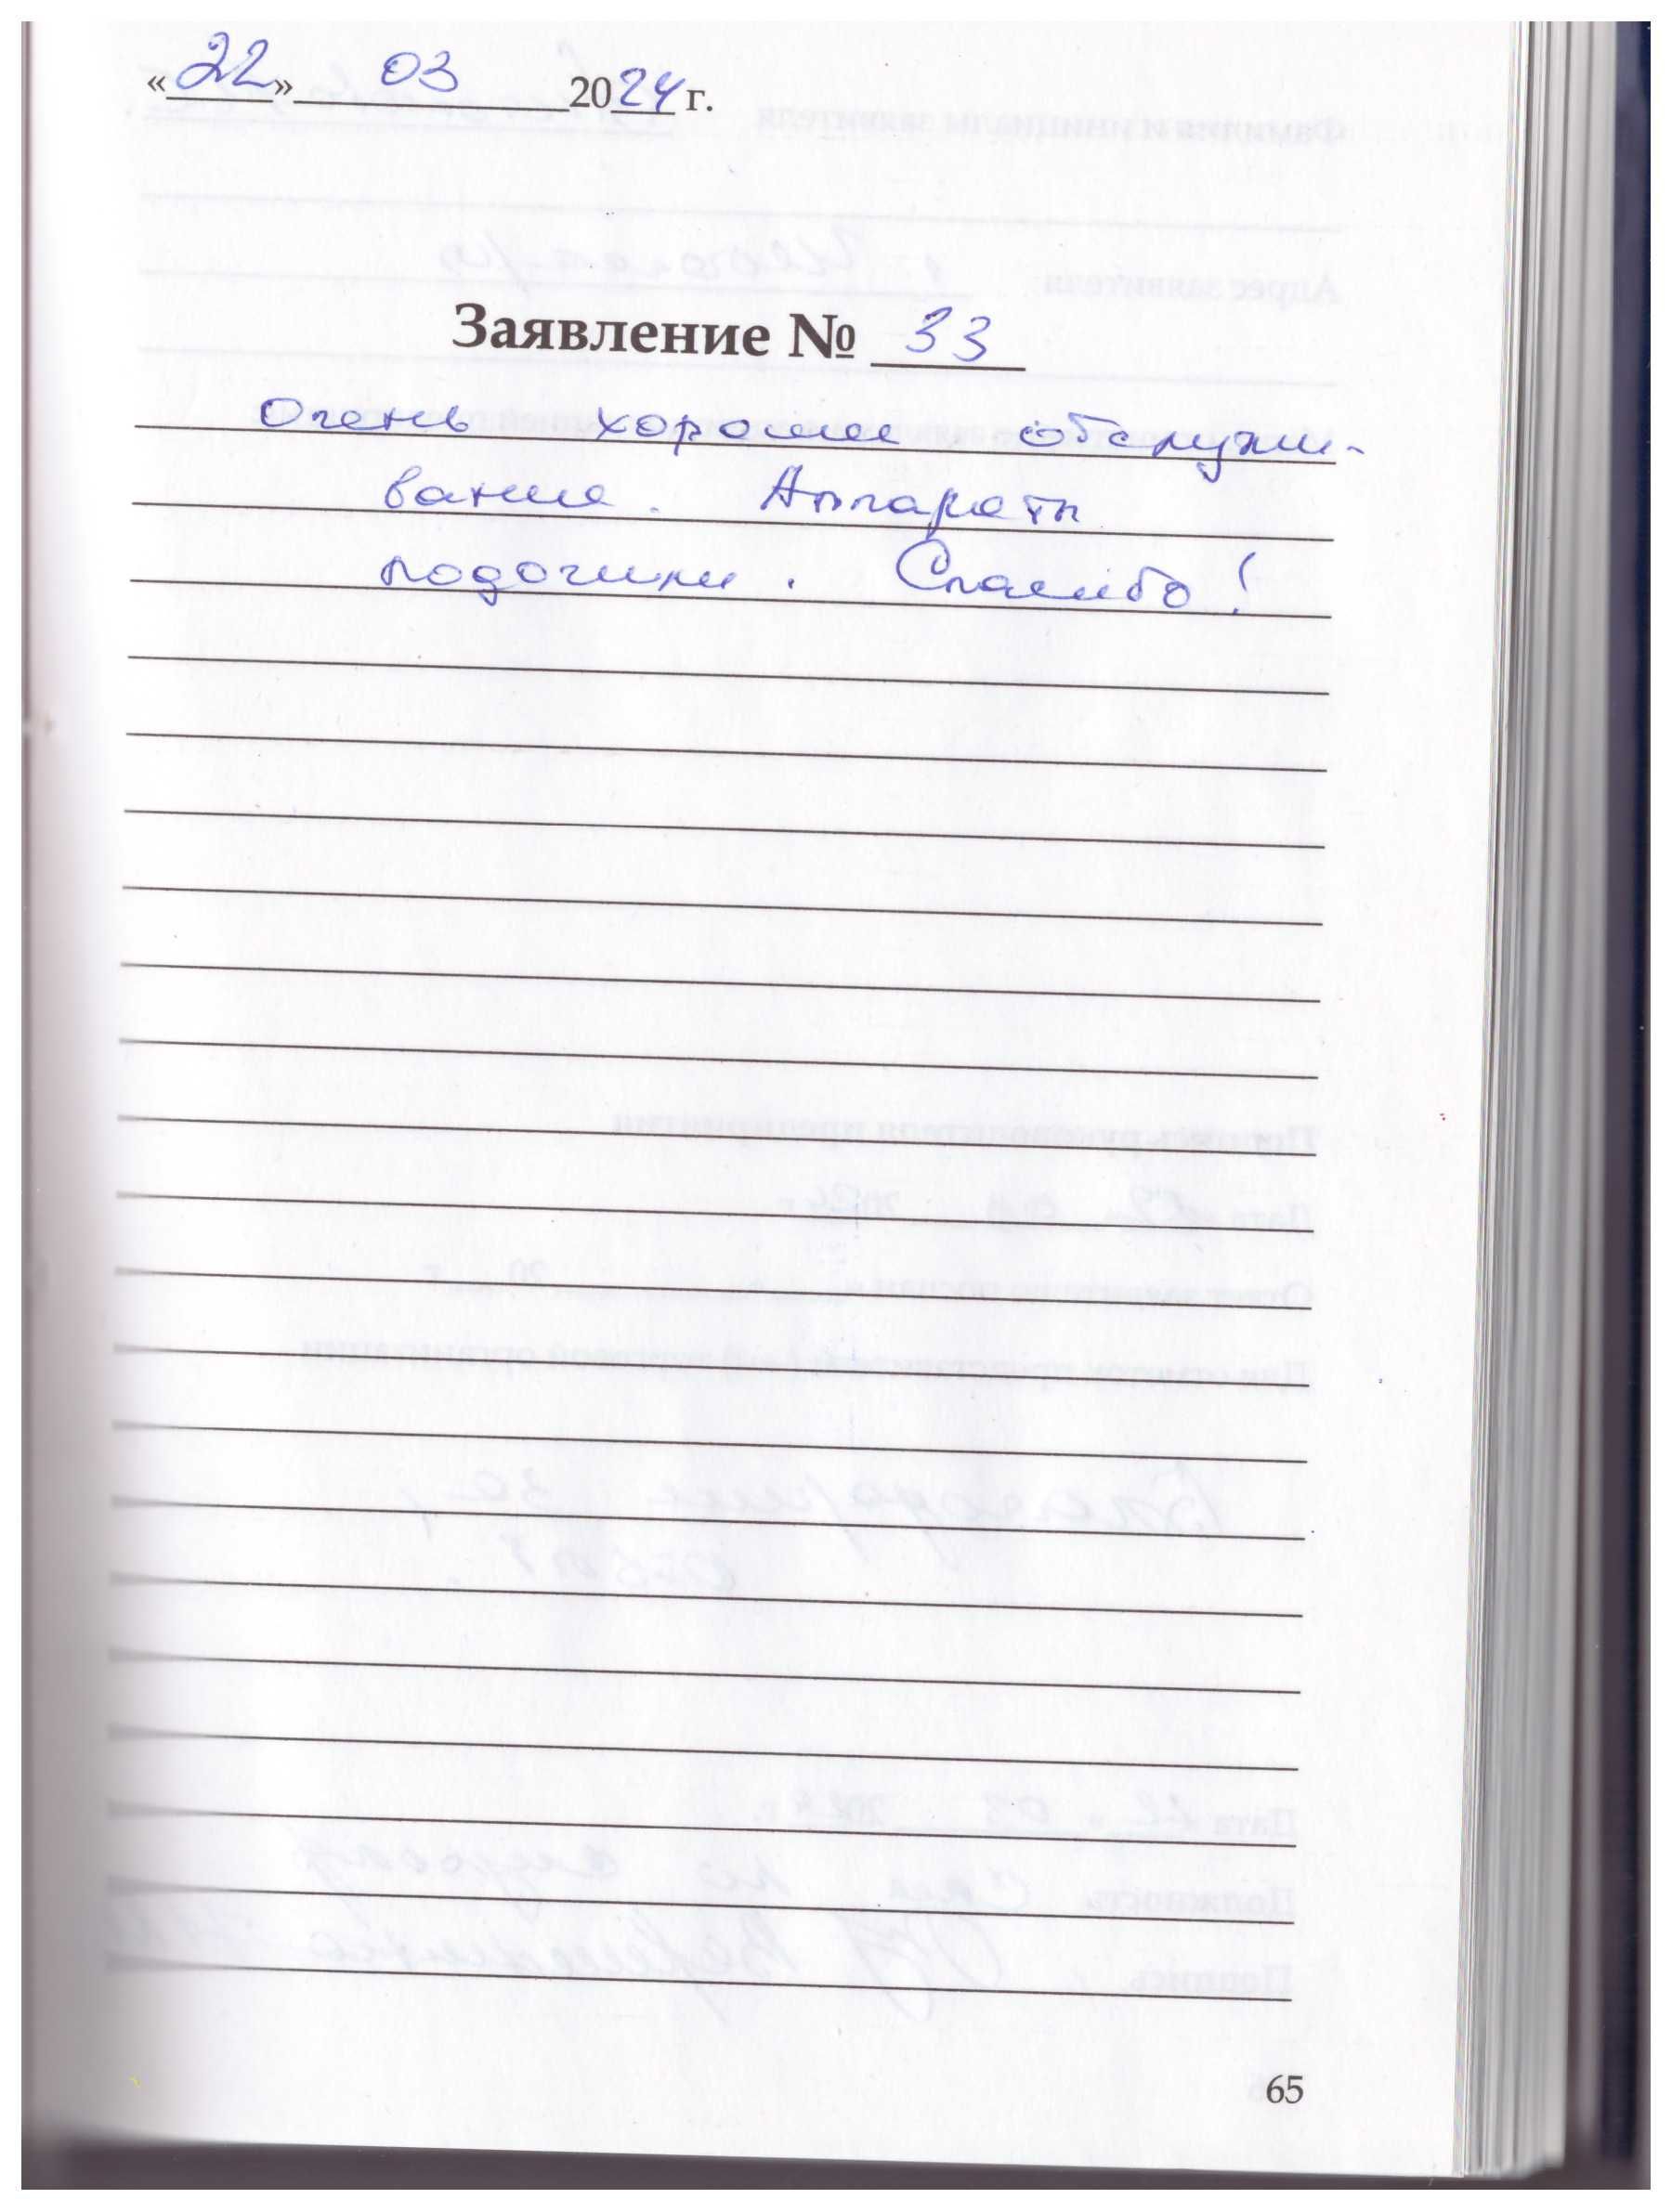 «22» 03 2024 г.
Заявление № 33
Очень хорошее обслужи-
вание. Аппараты
подочили. Спасибо!
65